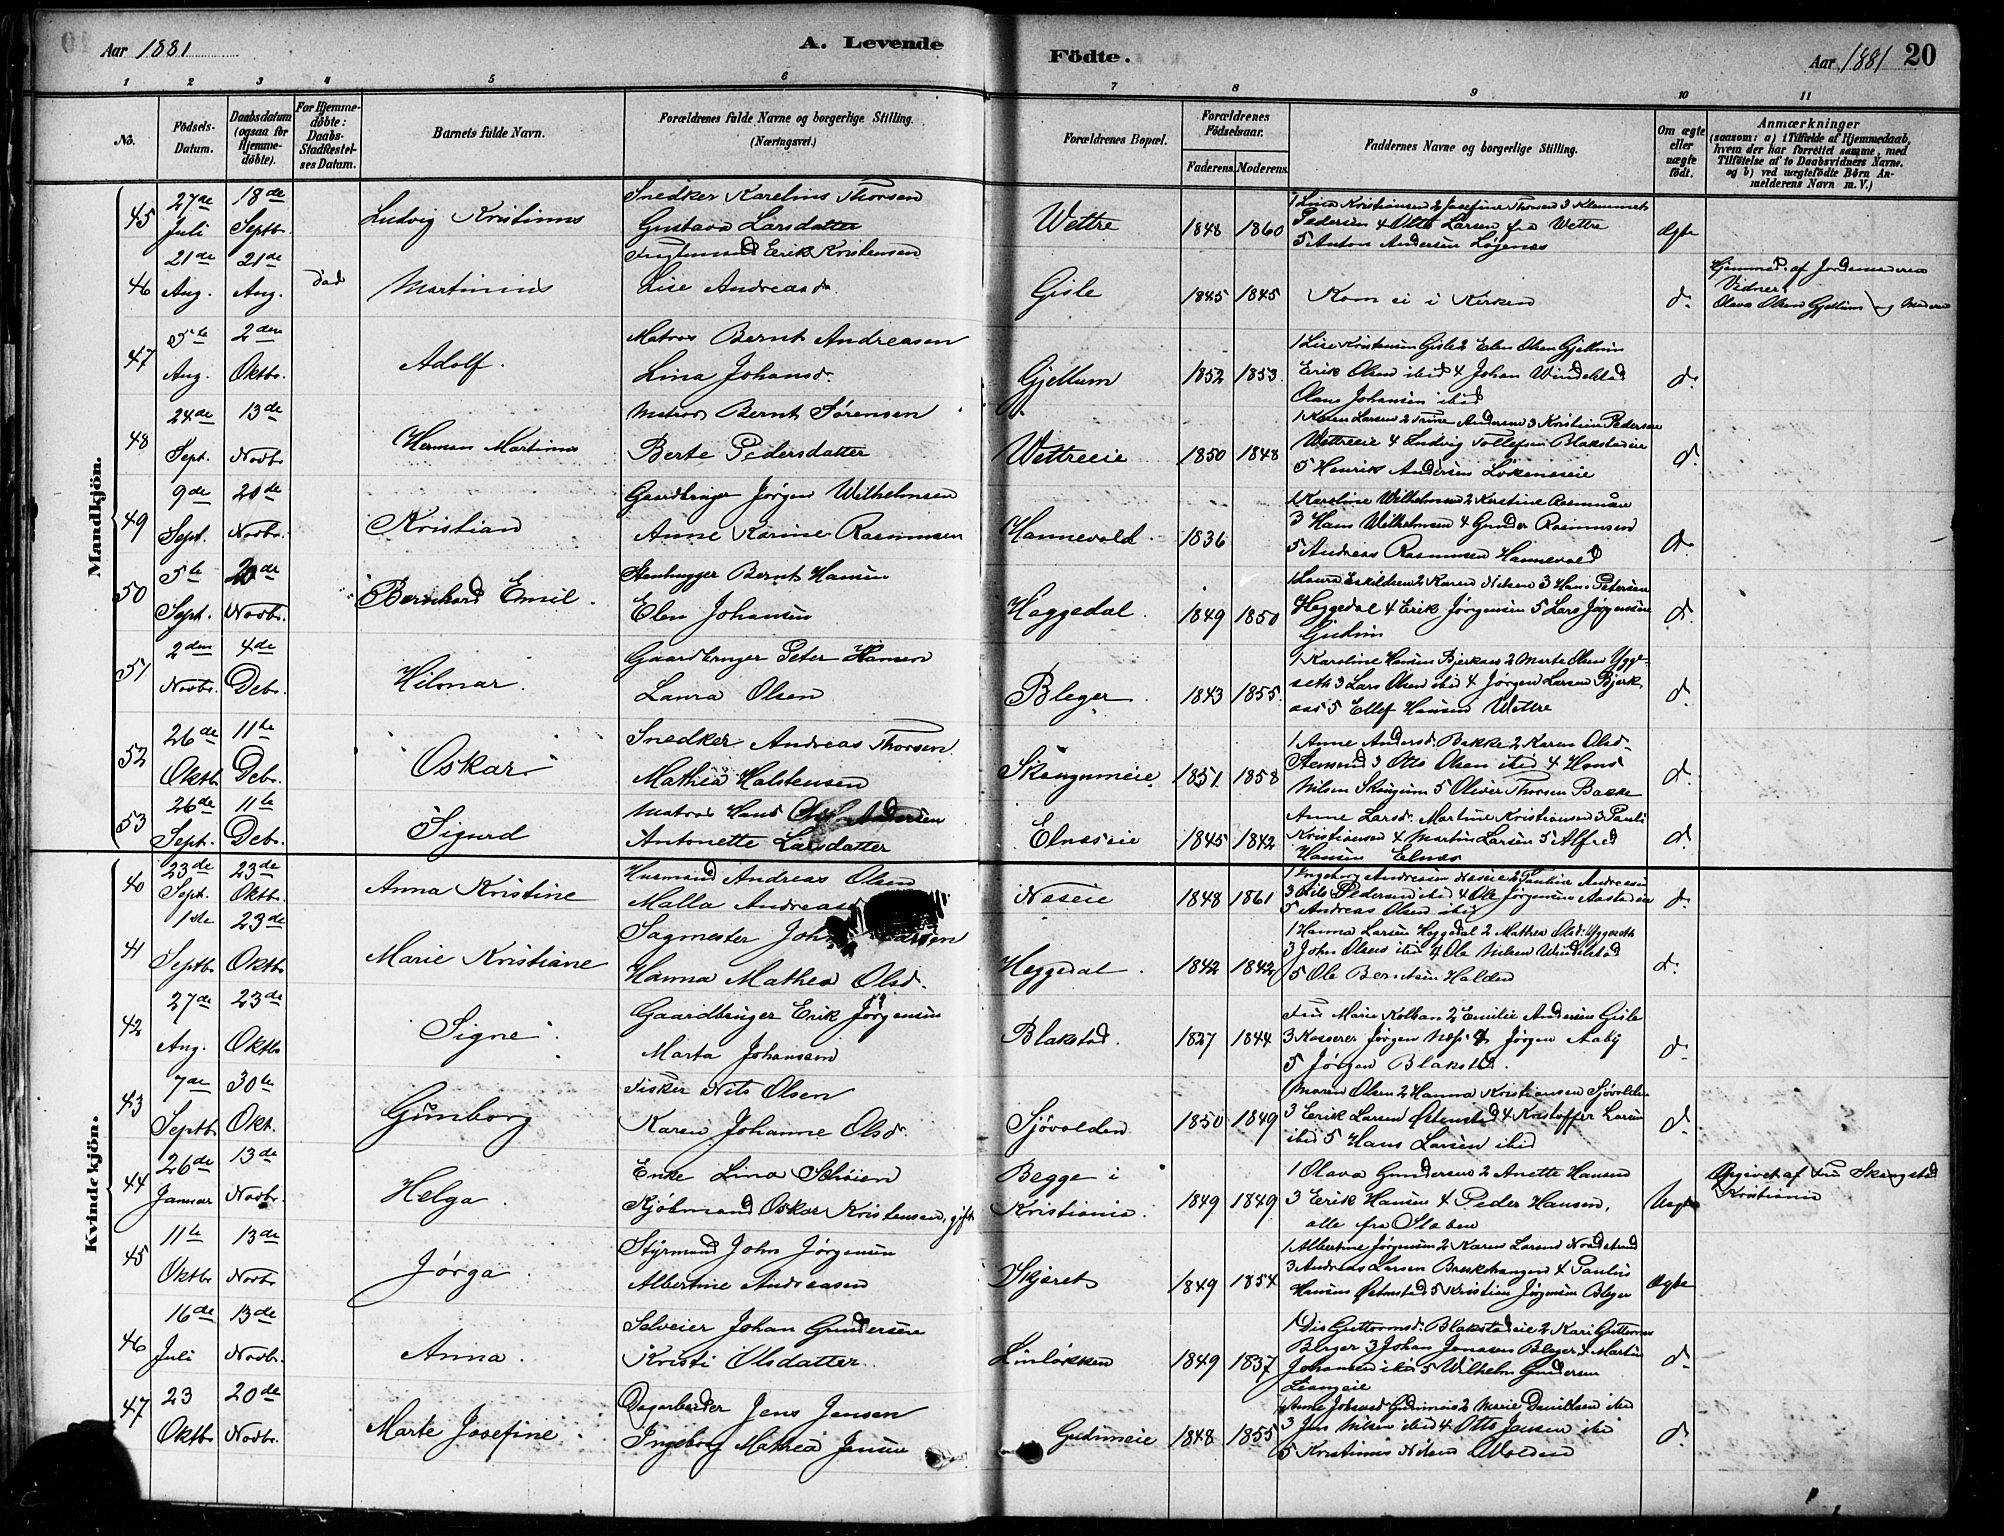 Aar 1881
A. Levende
Födte.
Aar 1881 20
1 2 3 4 5 6 7 8 9 10 11
No.
Födsels-Datum.
Daabsdatum (ogsaa for Hjemmedöbte).
For Hjemmedöbte: Daabs-Stadfæstelses Datum.
Barnets fulde Navn.
Forældrenes fulde Navne og borgerlige Stilling.
(Næringsvei.)
Forældrenes Bopæl.
Forældrenes Födselsaar.
Faderens. Moderens.
Faddernes Navne og borgerlige Stilling.
Om ægte eller uægte födt.
Anmærkninger
(saasom: a) i Tilfælde af Hjemmedaab,
hvem der har forrettet samme, med
Tilföielse af to Daabsvidners Navne.
og b) ved uægtefödte Börn An-
melderens Navn m. V.)
Mandkjön.
45 27de Juli 18de Septb. Ludvig Kristinus
Snedker Karelius Thorsen
Gustava Larsdatter
Wettre 1848 1860
1 Lina Kristiansen 2 Josefine Thorsen 3 Klemmet
Pedersen 4 Otto Larsen fra Wettre
5 Anton Andersen Løgenes
Ægte
46 21de Aug. 21de Aug. Død Martinius
Erik Kristensen
Lise Andreasd.
Gisle 1845 1845
Kom ei i Kirken
d.
Hjemmed. af Jordemoderen
Vidner:
Olava Olsen Gjellum og Moderen
47 5te Aug. 2den Oktbr. Adolf.
Matros Bernt Andreasen
Lina Johansd.
Gjellum 1852 1853.
1 Lise Kristensen Gisle 2 Elen Olsen Gjellum
Erik Olsen ibid 4 Johan Windelstad
Olaus Johansen ibid
d.
48 24de Sept. 13de Novbr. Herman Martinus
Matros Bernt Sørensen
Berte Pedersdatter
Wettreeie 1850 1848
1 Karen Larsen 2 Trine Andersen 3 Kristian Pedersen
Wettreeie 4 Ludvig Tollefsen Blakstadeie
5 Henrik Andersen Løkeneseie
d.
49 9de Sept. 20de Novbr. Kristian
Gaardbruger Jørgen Wilhelmsen
Anne Karine Rasmussen
Hannevold. 1836
1 Karoline Wilhelmsen 2 Kristine Rasmussen
3 Hans Wilhelmsen 4 Gunder Rasmussen
5 Andreas Rasmussen Hannevold
d.
50 5te Sept. 20de Novbr. Bernhard Emil.
Stenhugger Bernt Hansen
Elen Johansen
Heggedal. 1849 1850
1 Laura Eskildsen 2 Karen Nilsen 3 Hans Petersen
Heggedal 4 Erik Jørgensen 5 Lars Jørgensen
d.
51 2den Novbr. 4de Debr. Hilmar.
Gaardbruger Peter Hansen
Laura Olsen
Bleger. 1843 1855.
1 Karoline Hansen Bjerkaas 2 Marte Olsen Ygge-
seth 3 Lars Olsen ibid 4 Jørgen Larsen Bjerk-
aas 5 Ellef Hansen Wettre
d.
52 26de Oktbr. 11te Debr. Oskar
Snedker Andreas Thorsen.
Mathea Halstensen
Skougumeie 1851 1858
1 Anne Andersd. Bakke 2 Karen Olsd.
3 Otto Olsen ibid 4 Hans
Nilsen Skougum 5 Oliver Thorsen Bakke
d.
53 26de Sept. 11te Debr. Sigurd
Matros Hans Andersen
Antonette Larsdatter
Elnæseie 1845 1842
Anne Larsd. Martine Kristiansen 3 Pauli
Kristiansen 4 Martin Larsen 5 Alfred
Hansen Elnæs
d.
Kvindekjön.
40 23de Sept. 23de Oktbr. Anna Kristine
Husmand Andreas Olsen
Malla Andreas
Næseie 1848 1861
1 Ingeborg Andreasen Næseie 2 Pauline Andreasen
3 Nils Pedersen ibid 4 Ole Jørgensen
5 Andreas Olsen ibid
d.
41 1ste Septbr. 23de Oktbr. Marie Kristiane
Sagmester Joh Larsen
Hanna Mathea Olsd.
Heggedal. 1842 1842
1 Hanna Larsen Heggedal 2 Mathea Olsd. Yggeseth
3 John Olsen ibid 4 Ole Nilsen Windelstad
5 Ole Berntsen Halden
d.
42 27de Aug. 23de Oktbr. Signe.
Gaardbruger Erik Jørgensen
Marta Johansen
Blakstad. 1827 1844
Fru Marie Kolban 2 Emilie Andersen Gisle
3 Kasserer Jørgen Næss 4 Jørgen Aaby
5 Jørgen Blakstad.
d.
43 7de Septbr. 30te Okt. Gunborg
Fisker Nils Olsen
Karen Johanne Olsd.
Sjøvolden 1850 1849
1 Maren Olsen 2 Hanna Kristiansen Sjøvolden
3 Erik Larsen Østenstad 4 Kristoffer Larsen
ibid 5 Hans Larsen ibid
d.
44 26de Januar 13de Novbr. Helga.
Enke Lina Schiøen
Kjøbmand Oskar Kristensen, gift
Begge i
Kristiania. 1849 1849
1 Olava Gundersen 2 Anette Hansen
3 Erik Hansen 4 Peder Hansen,
alle fra Slaben
Uægte
Opgivet af Fru Skougstad
Kristiania
45 11te Oktbr. 13de Novbr. Jørga.
Styrmand John Jørgensen
Albertine Andreasen
Skjæret 1849 1854
1 Albertine Jørgensen 2 Karen Larsen Nordstrand
3 Andreas Larsen 4 Paulus
Hansen Østenstad 5 Kristian Jørgensen Bleger
Ægte
46 16de Juli 13de Novbr. Anna.
Selveier Johan Gundersen
Kristi Olsdatter.
Linløkken 1849 1837
1 Dis Guttormsd. Blakstadeie 2 Kari Guttormsen
Bleger 3 Johan Jonasen Bleger 4 Martin
Johansen ibid 5 Wilhelm Gundersen
Liangeie
d.
47 23 Oktbr. 20de Novbr. Marte Josefine.
Dagarbeider Jens Jensen
Ingeborg Mathea Jensen
Gudimeie 1848 1855
Anne Johansd. Gudimeie 2 Marie Davidsen ibid
3 Jens Nilsen ibid 4 Otto Jensen ibid
5 Kristinus Nilsen Wolden
d.